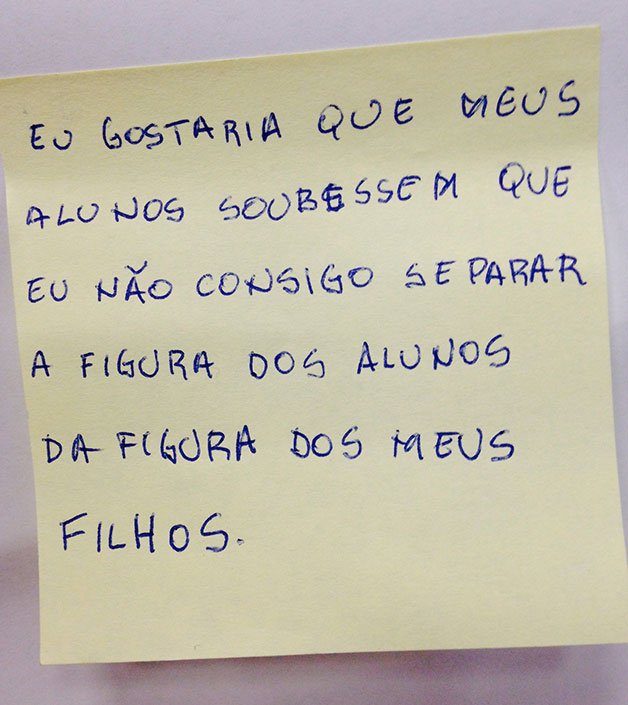 EU GOSTARIA QUE MEUS
ALUNOS SOUBESSEM QUE
EU NÃO CONSIGO SEPARAR
A FIGURA DOS ALUNOS
DA FIGURA DOS MEUS
FILHOS.